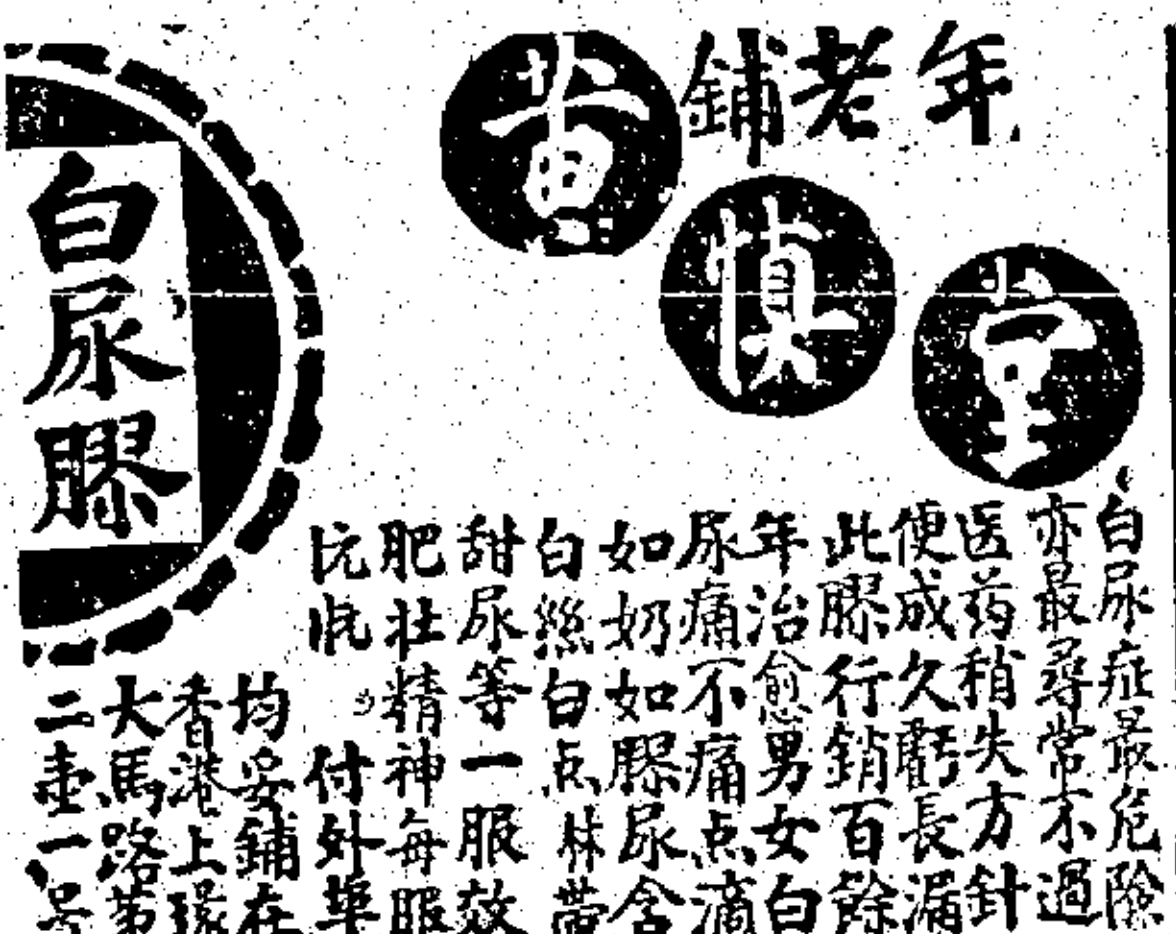 年老鋪
黃慎堂
白尿膠
白尿症最危險
亦最尋常不過
医药稍失方針
便成久虧長漏
此膠行銷百餘
年治愈男女白
尿痛不痛点滴
如奶如膠尿含
白絲白点淋帶
甜尿等一服效
肥壯精神每服
付外埠
均妥鋪在
香港上環
大馬路第
二壹一号